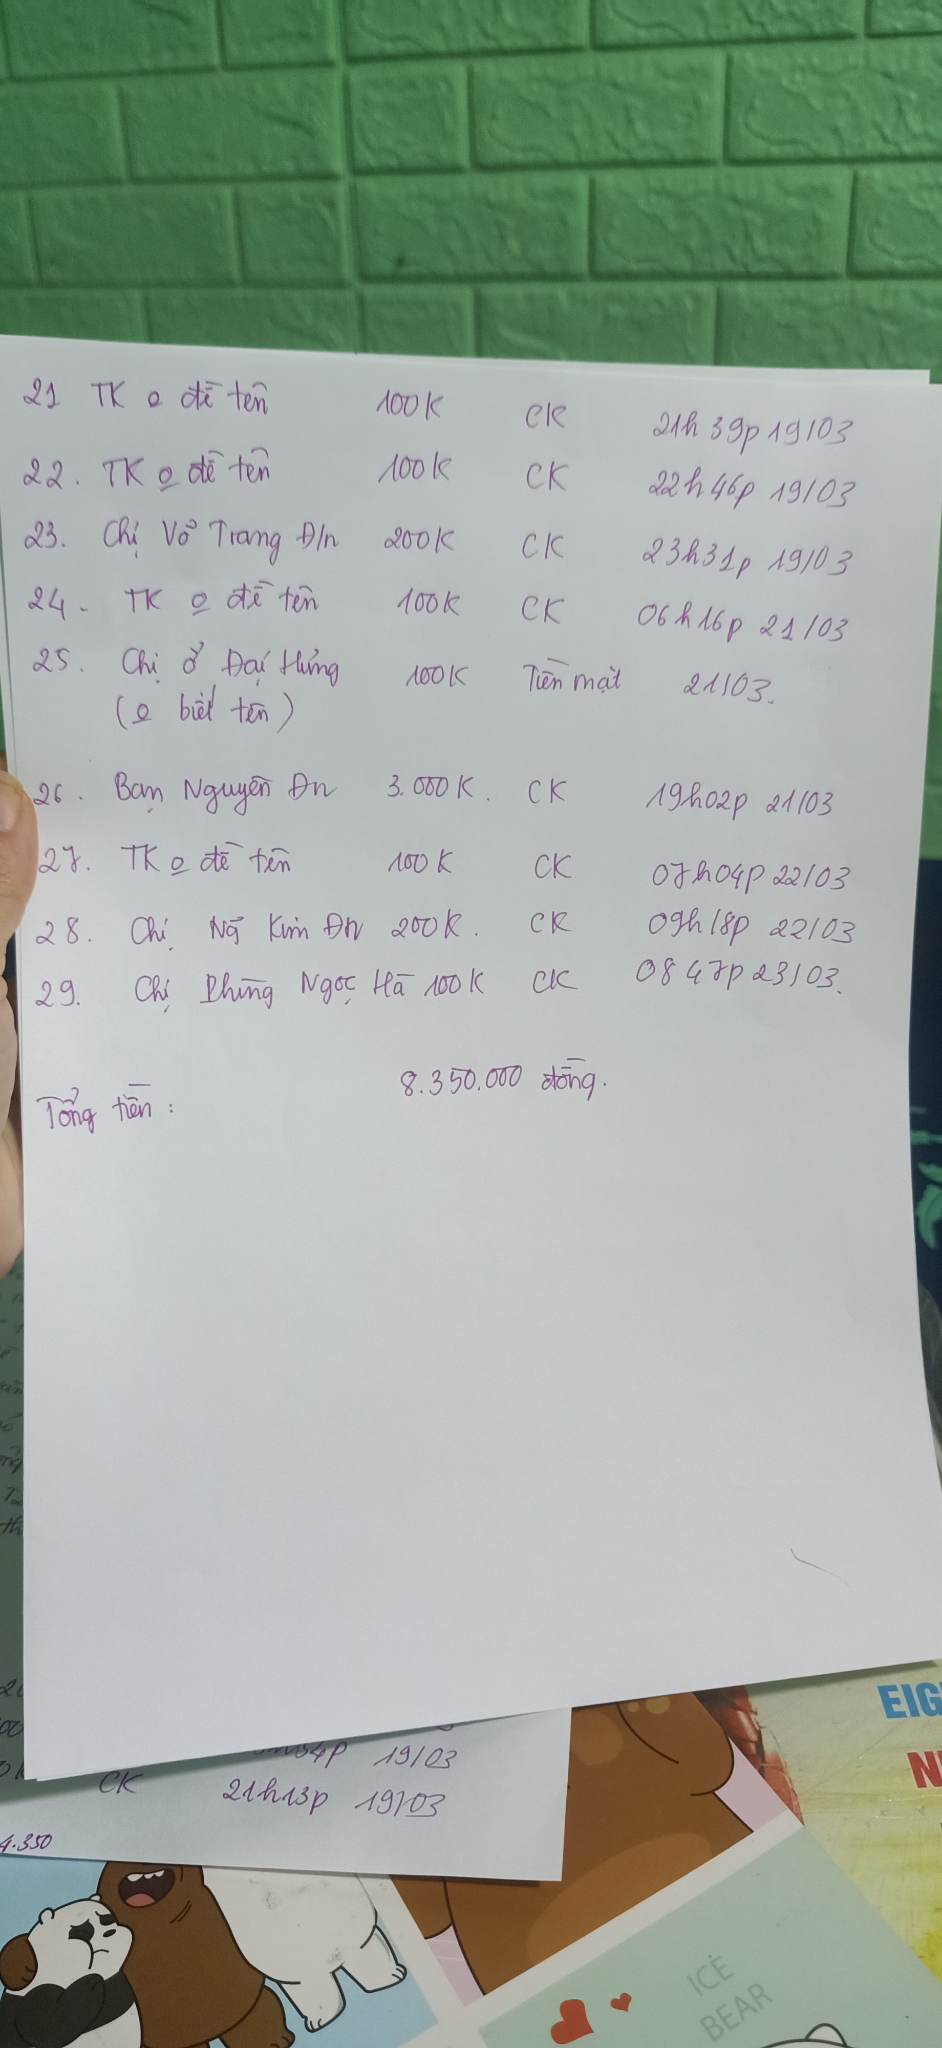 21 TK o đề tên 100K CK 21h39p 19/03
22. TK o đề tên 100K CK 22h46p 19/03
23. Chị Võ Trang Đ/n 200K CK 23h31p 19/03
24. TK o đề tên 100K CK 06h16p 21/03
25. Chị ở Đại Hưng 100K Tiền mặt 21/03.
(o biết tên)
26. Bạn Nguyên Đn 3.000K. CK 19h02p 21/03
27. TK o đề tên 100K CK 07h04p 22/03
28. Chị Kim Đn 200K. CK 09h18p 22/03
29. Chị Phùng Ngọc Hà 100K CK 0847p 23/03.
Tổng tiền: 8.350.000 đồng.
54p 19/03
CK 21h13p 19/03
4.350
EIG
ICE
BEAR